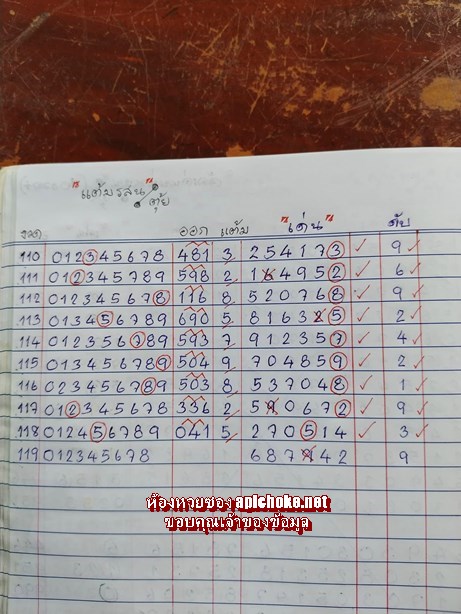 "แต้มรสน"
ตุ้ย
งวด ออก แต้ม "เด่น" ดับ
110 012345678 481 3 254173 9
111 012345789 598 2 164952 6
112 012345678 116 8 520768 9
113 013456789 690 5 816325 2
114 012356789 593 7 912357 4
115 013456789 504 9 704859 2
116 023456789 503 8 537048 1
117 012345678 336 2 590672 9
118 012456789 041 5 270514 3
119 012345678 687942 9
ห้องหวยซอง apichoke.net
ขอบคุณเจ้าของข้อมูล